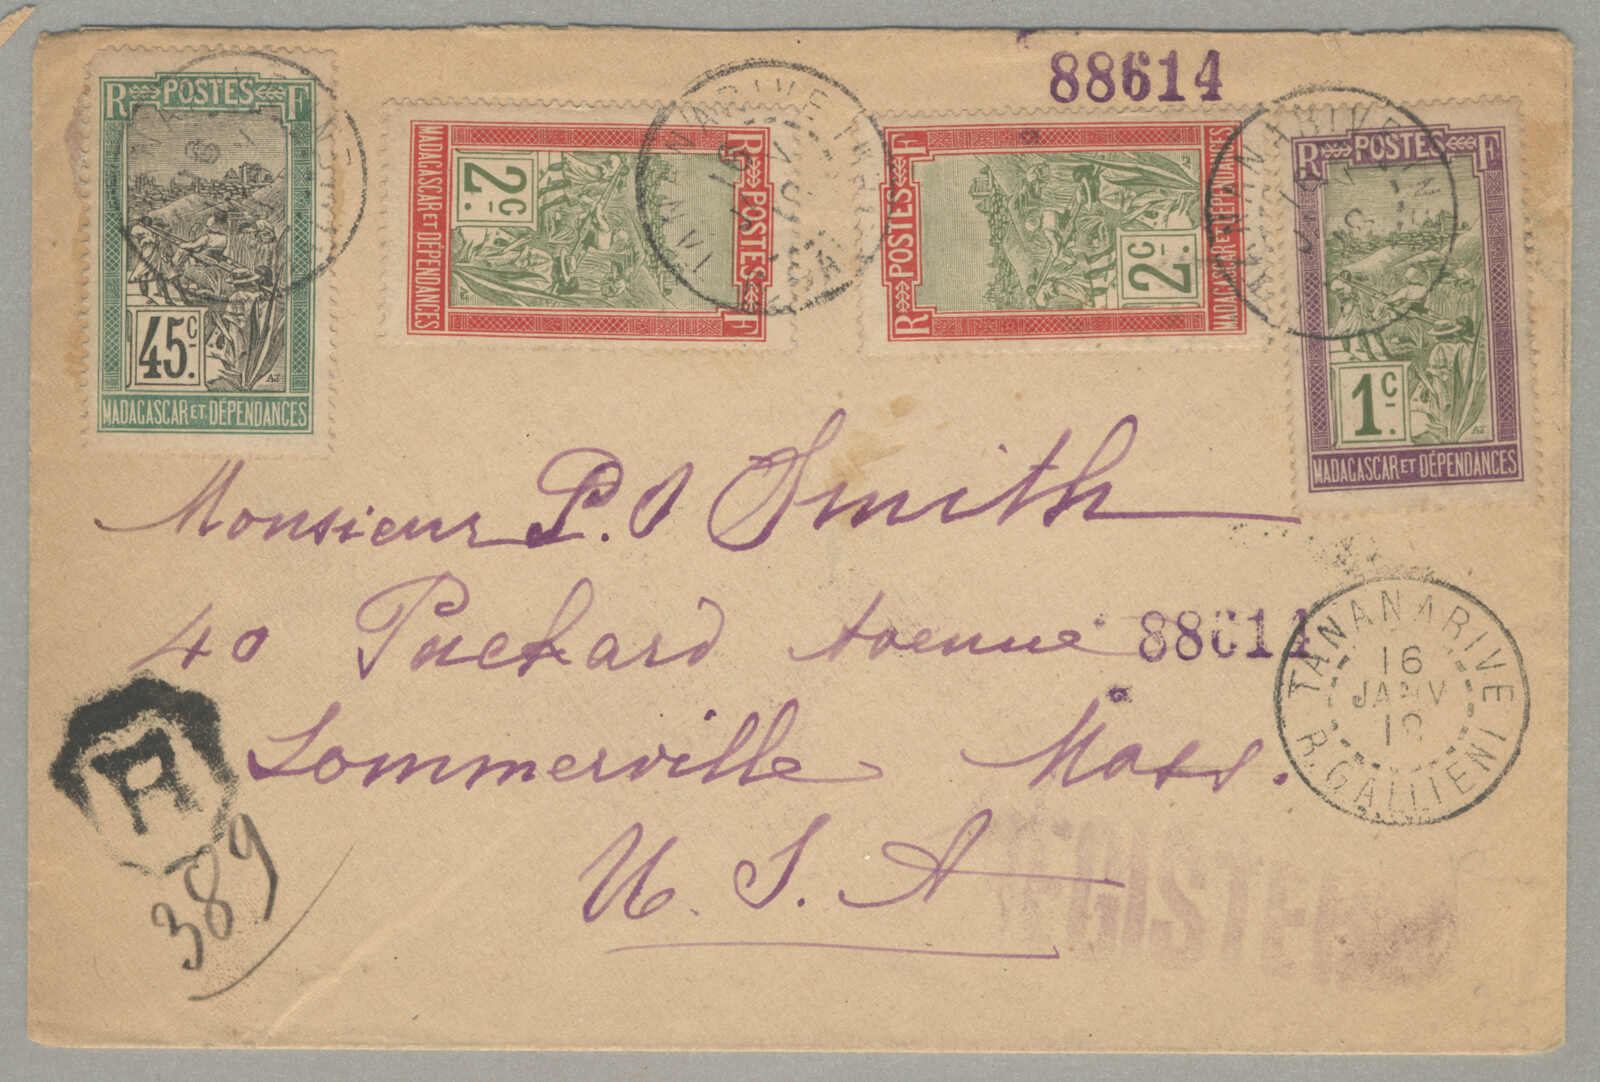 88614
R POSTES F
45c.
MADAGASCAR ET DÉPENDANCES
R POSTES F
2c.
MADAGASCAR ET DÉPENDANCES
R POSTES F
2c.
MADAGASCAR ET DÉPENDANCES
R POSTES F
1c.
MADAGASCAR ET DÉPENDANCES
Monsieur P. S Smith
40 Puchard Avenue 88614
Sommerville Mass.
U. S. A
TANANARIVE
16
JANV
R. GALLIENI
R
389